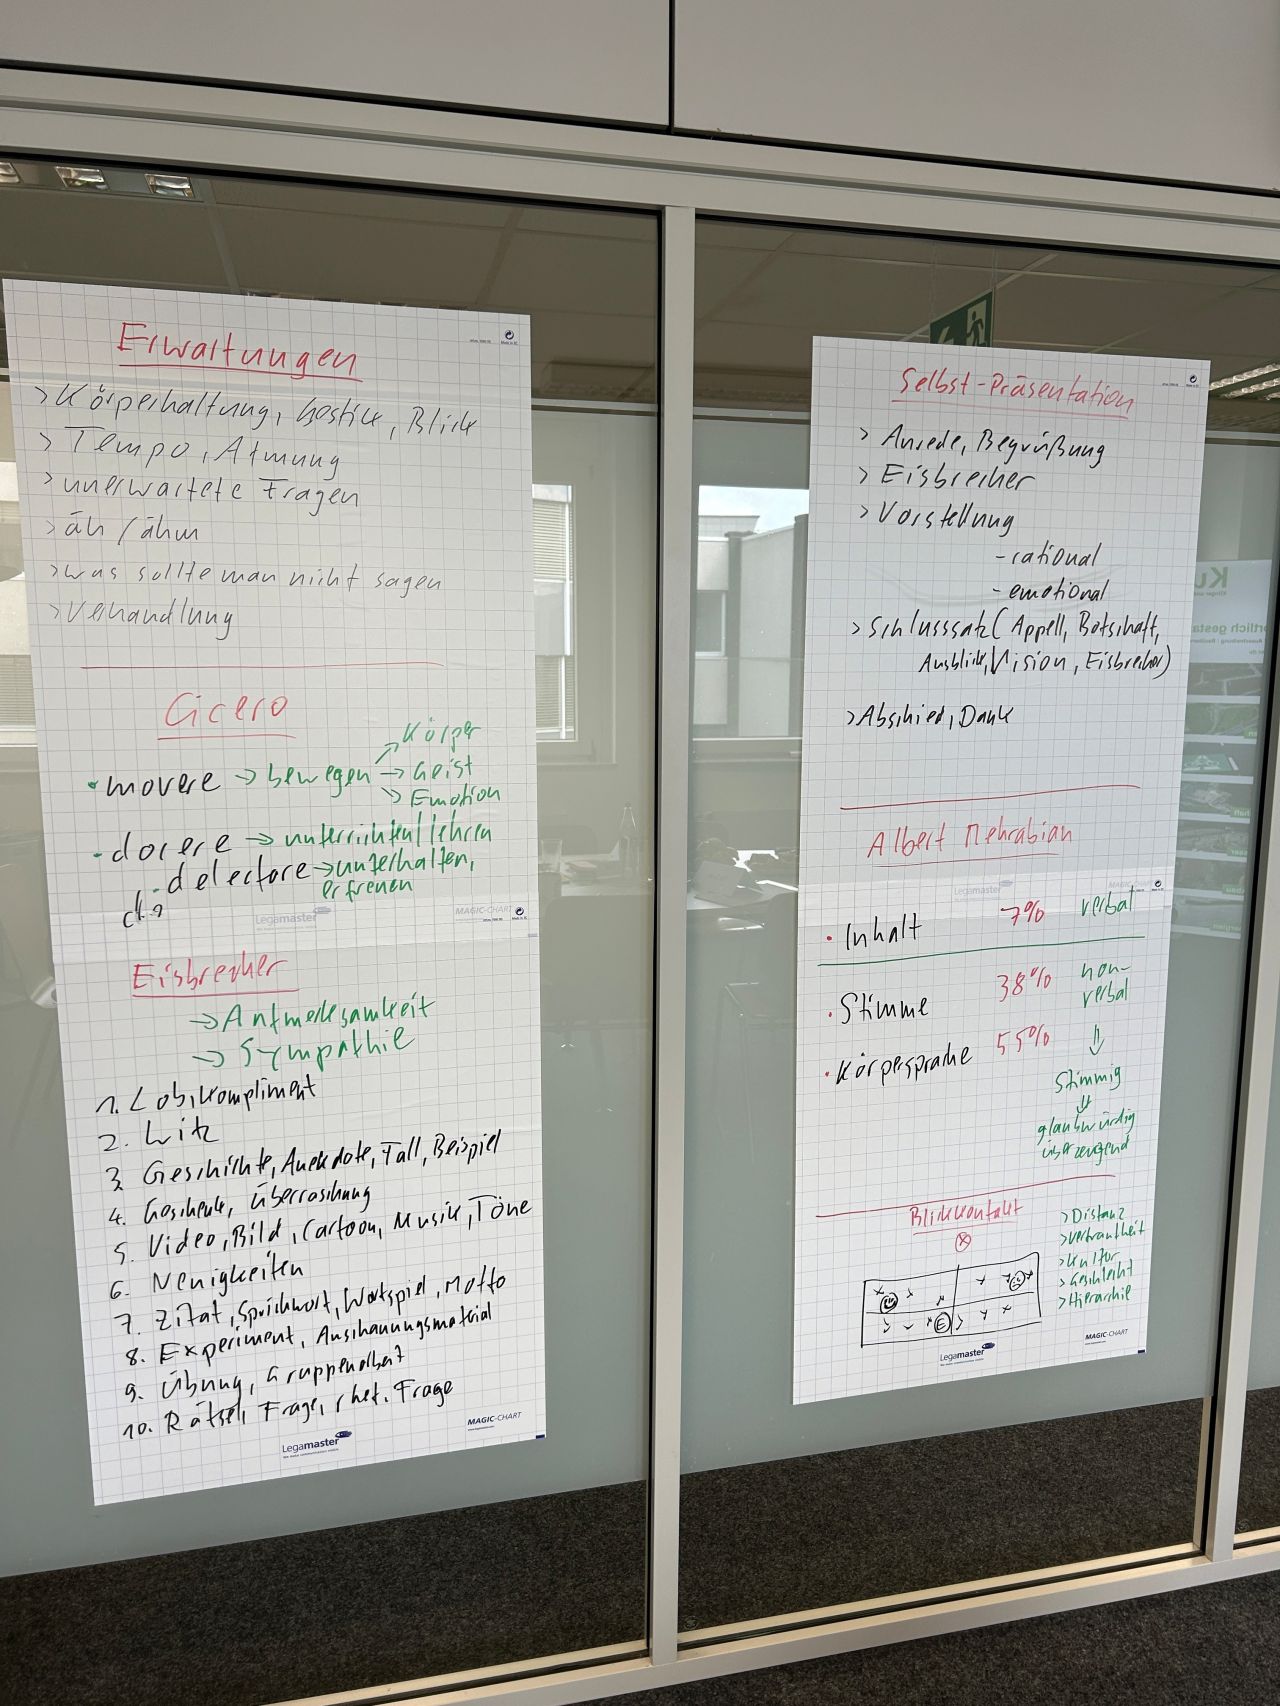 Erwartungen
> Körperhaltung, Gestik, Blick
> Tempo, Atmung
> unerwartete Fragen
> äh / ähm
> was sollte man nicht sagen
> Verhandlung
Cicero
• movere → bewegen → Körper
→ Geist
→ Emotion
• docere → unterrichten/lehren
• delectare → unterhalten,
erfreuen
Legamaster MAGIC-CHART
Eisbrecher
→ Aufmerksamkeit
→ Sympathie
1. Lob, Kompliment
2. Witz
3. Geschichte, Anekdote, Fall, Beispiel
4. Geschenk, Überraschung
5. Video, Bild, Cartoon, Musik, Töne
6. Neuigkeiten
7. Zitat, Sprichwort, Wortspiel, Motto
8. Experiment, Anschauungsmaterial
9. Übung, Gruppenarbeit
10. Rätsel, Frage, rhet. Frage
Legamaster MAGIC-CHART
Selbst-Präsentation
> Anrede, Begrüßung
> Eisbrecher
> Vorstellung
- rational
- emotional
> Schlusssatz (Appell, Botschaft,
Ausblick, Vision, Eisbrecher)
> Abschied, Dank
Albert Mehrabian
Legamaster MAGIC-CHART
• Inhalt 7% verbal
• Stimme 38% non-
verbal
• Körpersprache 55%
⇓
Stimmig
⇓
glaubwürdig
überzeugend
Blickkontakt
> Distanz
> Vertrautheit
> Kultur
> Geschlecht
> Hierarchie
E
Legamaster MAGIC-CHART